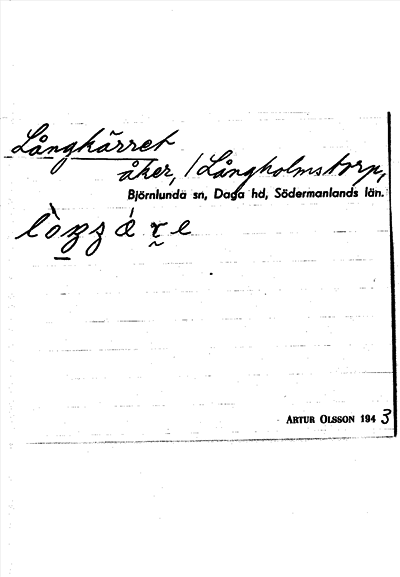 Långkärret
åker, / Långholmstorp,
Björnlunda sn, Daga hd, Södermanlands län.
ARTUR OLSSON 1943